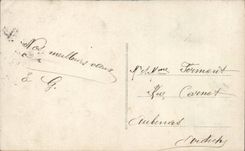 Nos meilleurs vœux
E G.
Mr et Mme Fermont
Rue Carnot
Aubenas
Ardèche